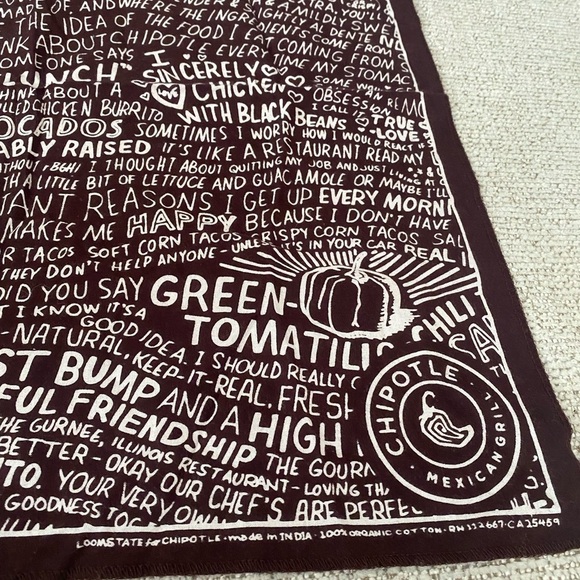 MADE OF AND WHERE THE INGR
THE IDEA OF THE FOOD I
A MILDLY SWE
THINK ABOUT CHIPOTLE EVERY TIME MY STOMAC
COMING FROM
SOMEONE SAYS
LUNCH"
I SINCERELY
LOVE
CHICKEN
WITH BLACK BEANS
OBSESSION
I CALL IT TRUE
LOVE
THINK ABOUT A
GRILLED CHICKEN BURRITO
OCADOS SOMETIMES I WORRY HOW I WOULD REACT IF
ABLY RAISED IT'S LIKE A RESTAURANT READ MY
I THOUGHT ABOUT QUITTING MY JOB AND JUST LIVING AT
TH A LITTLE BIT OF LETTUCE AND GUACAMOLE OR MAYBE I'LL
TANT REASONS I GET UP EVERY MORNI
MAKES ME HAPPY BECAUSE I DON'T HAVE
OR TACOS SOFT CORN TACOS CRISPY CORN TACOS SAL
THEY DON'T HELP ANYONE - UNLESS IT'S IN YOUR CAR REAL
DID YOU SAY GREEN-
TOMATILLO CHILI
T I KNOW IT'S A
GOOD IDEA. I SHOULD REALLY
-NATURAL, KEEP-IT-REAL, FRESH
ST BUMP AND A HIGH
FUL FRIENDSHIP
THE GURNEE, ILLINOIS RESTAURANT - LOVING TH
THE GOURM
BETTER - OKAY OUR CHEF'S ARE PERFE
ITO. YOUR VERY OWN
GOODNESS TOGE
CHIPOTLE
MEXICAN GRILL
LOOMSTATE for CHIPOTLE • made in INDIA • 100% ORGANIC COTTON • RN 112667 • CA 25459